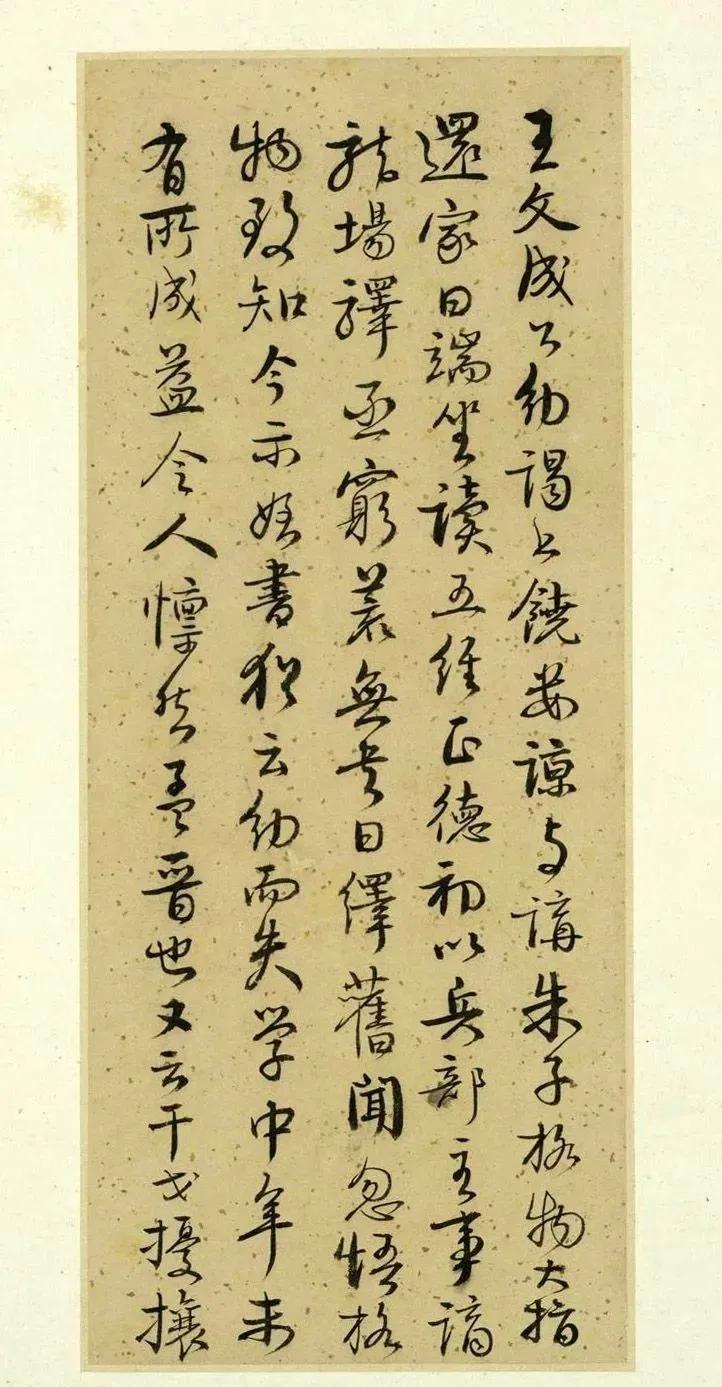 王文成公幼謁上饒婁諒與講朱子格物大指
還家日端坐讀五經正德初以兵部主事謫
龍場驛丞窮荒無書日繹舊聞忽悟格
物致知今示姪書猶云幼而失学中年未
有所成益令人懍然孟晉也又云干戈擾攘